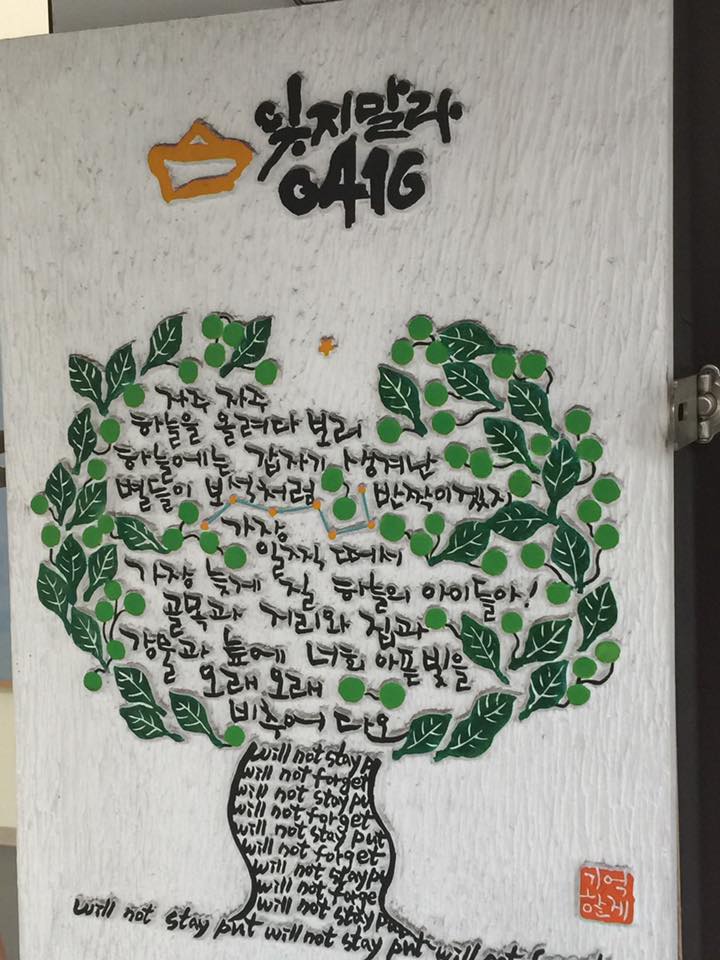 잊지말라
0416
자주 자주
하늘을 올려다 보리
하늘에는 갑자기 생겨난
별들이 보석처럼 반짝이겠지
가장
일찍 떠서
가장 늦게 질 하늘의 아이들아!
골목과 거리와 집과
강물과 높에 너희 아픈 빛을
오래 오래
비추어 다오
will not stay p
will not forget
will not stay put
will not forget
will not stay put
will not forget
will not stay pu
will not forge
will not stay put
will not stay put will not stay put will not
기억
할게